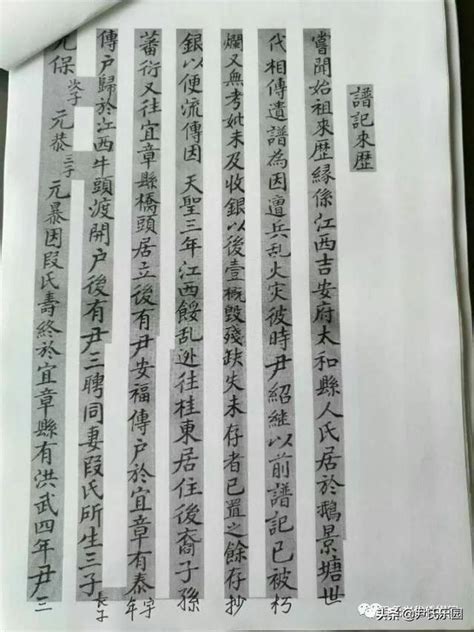 譜記来歷
嘗聞始祖来歷緣係江西吉安府太和縣人氏居於鵝景塘世
代相傳遺譜為因遭兵乱火灾彼時尹紹継以前譜記已被朽
爛又無考妣未及收銀以後壹概毀殘缺失未存者已置之餘存抄
銀以便流傳因 天聖三年江西餒乱迯往桂東居住後裔子孫
蕃衍又往宜章縣橋頭居立後有尹安福傳户於宜章有泰字年
傳户歸於江西牛頭渡開户後有尹三聘同妻段氏所生三子長子
元保次子 元恭三子 元暴因段氏壽終於宜章縣有洪武四年尹三
头条 @尹氏乐园